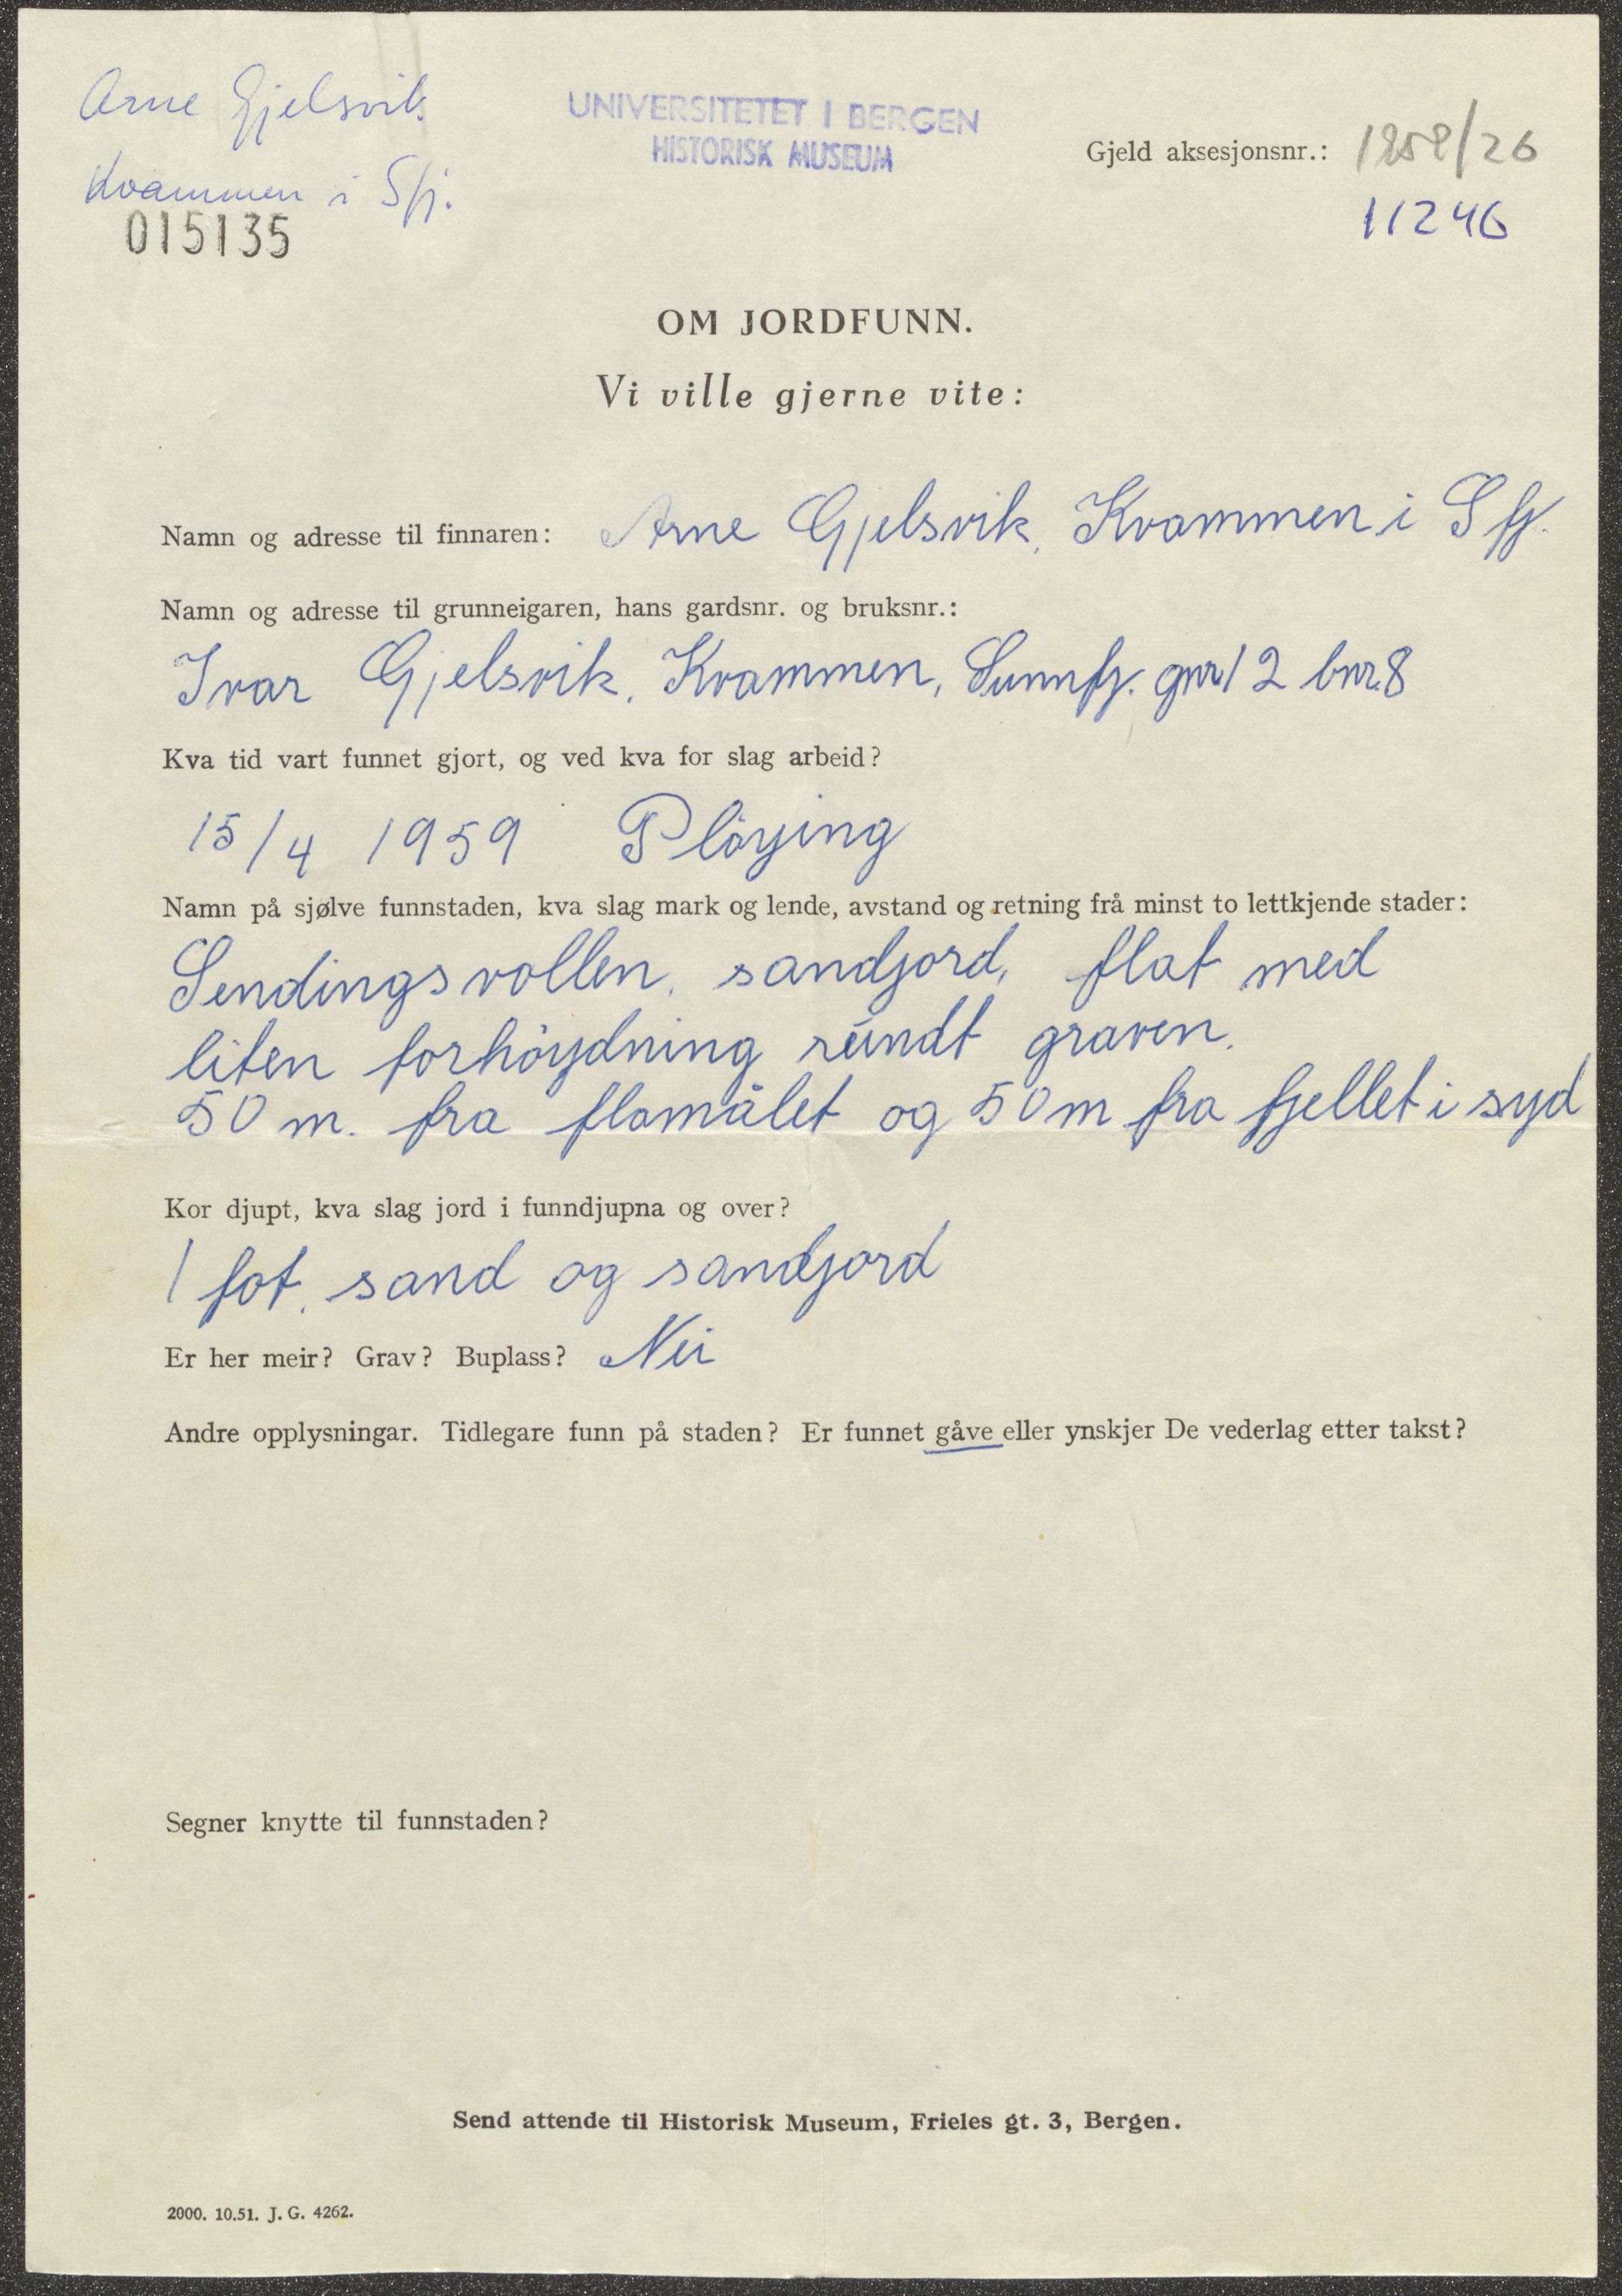 Arne Gjelsvik
Kvammen i Sfj.
015135
UNIVERSITETET I BERGEN
HISTORISK MUSEUM
Gjeld aksesjonsnr.: 1959/26
11246
OM JORDFUNN.
Vi ville gjerne vite:
Namn og adresse til finnaren: Arne Gjelsvik, Kvammen i Sfj.
Namn og adresse til grunneigaren, hans gardsnr. og bruksnr.:
Ivar Gjelsvik, Kvammen, Sunnfj. gnr 12 bnr. 8
Kva tid vart funnet gjort, og ved kva for slag arbeid?
15/4 1959 Plöying
Namn på sjølve funnstaden, kva slag mark og lende, avstand og retning frå minst to lettkjende stader:
Sendingsvollen, sandjord, flat med
liten forhöydning rundt graven.
50 m. fra flomålet og 50 m fra fjellet i syd
Kor djupt, kva slag jord i funndjupna og over?
1 fot, sand og sandjord
Er her meir? Grav? Buplass? Nei
Andre opplysningar. Tidlegare funn på staden? Er funnet gåve eller ynskjer De vederlag etter takst?
Segner knytte til funnstaden?
Send attende til Historisk Museum, Frieles gt. 3, Bergen.
2000. 10.51. J. G. 4262.